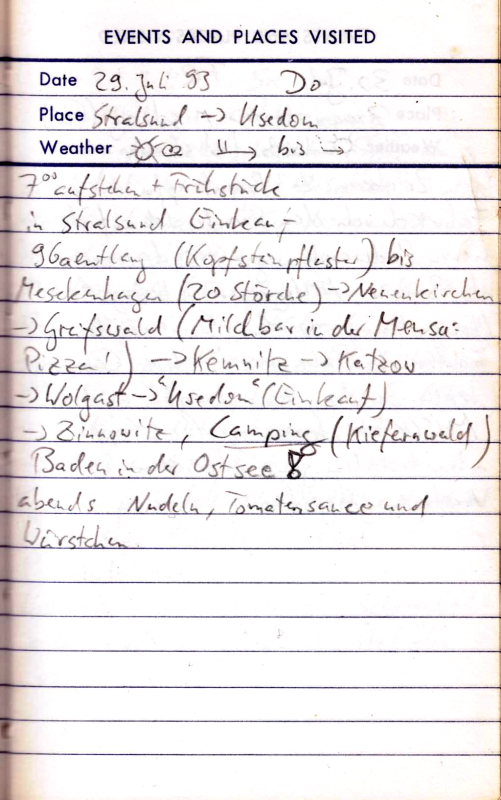 EVENTS AND PLACES VISITED
Date 29. Juli 93 Do
Place Stralsund -> Usedom
Weather bis ->
7 00 aufstehen + Frühstück
in Stralsund Einkauf
96a entlang (Kopfsteinpflaster) bis
Mesekenhagen (20 Störche) -> Neuenkirchen
-> Greifswald (Milchbar in der Mensa:
Pizza!) -> Kemnitz -> Katzow
-> Wolgast -> "Usedom" (Einkauf)
-> Zinnowitz, Camping (Kiefernwald)
Baden in der Ostsee !
abends Nudeln, Tomatensauce und
Würstchen.